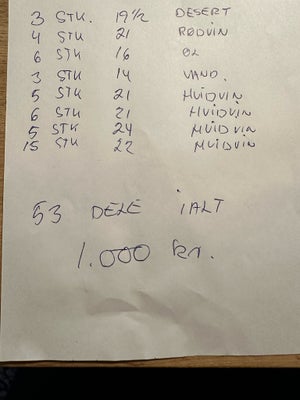 3 STK. 19½ DESERT
4 STK 21 RØDVIN
6 STK 16 ØL
3 STK 14 VAND.
5 STK 21 HVIDVIN
6 STK 21 HVIDVIN
5 STK 24 HVIDVIN
15 STK 22 HVIDVIN
53 DELE iALT
1.000 kr.